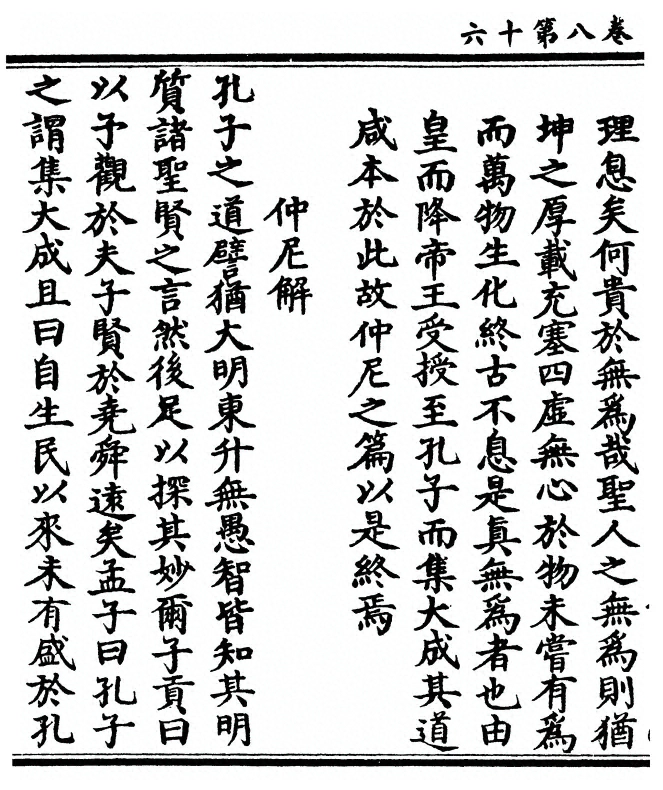 卷八第十六
理息矣何貴於無爲哉聖人之無爲則猶
坤之厚載充塞四虛無心於物未嘗有爲
而萬物生化終古不息是眞無爲者也由
皇而降帝王受授至孔子而集大成其道
咸本於此故仲尼之篇以是終焉
仲尼解
孔子之道譬猶大明東升無愚智皆知其明
質諸聖賢之言然後足以探其妙爾子貢曰
以予觀於夫子賢於堯舜遠矣孟子曰孔子
之謂集大成且曰自生民以來未有盛於孔